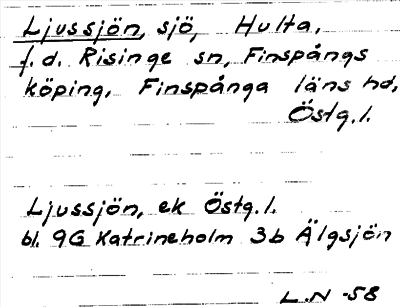 Ljussjön, sjö, Hulta,
f.d. Risinge sn, Finspångs
köping, Finspånga läns hd,
Östg.l.
Ljussjön, ek Östg.l.
bl. 9G Katrineholm 3b Älgsjön
L.N -58